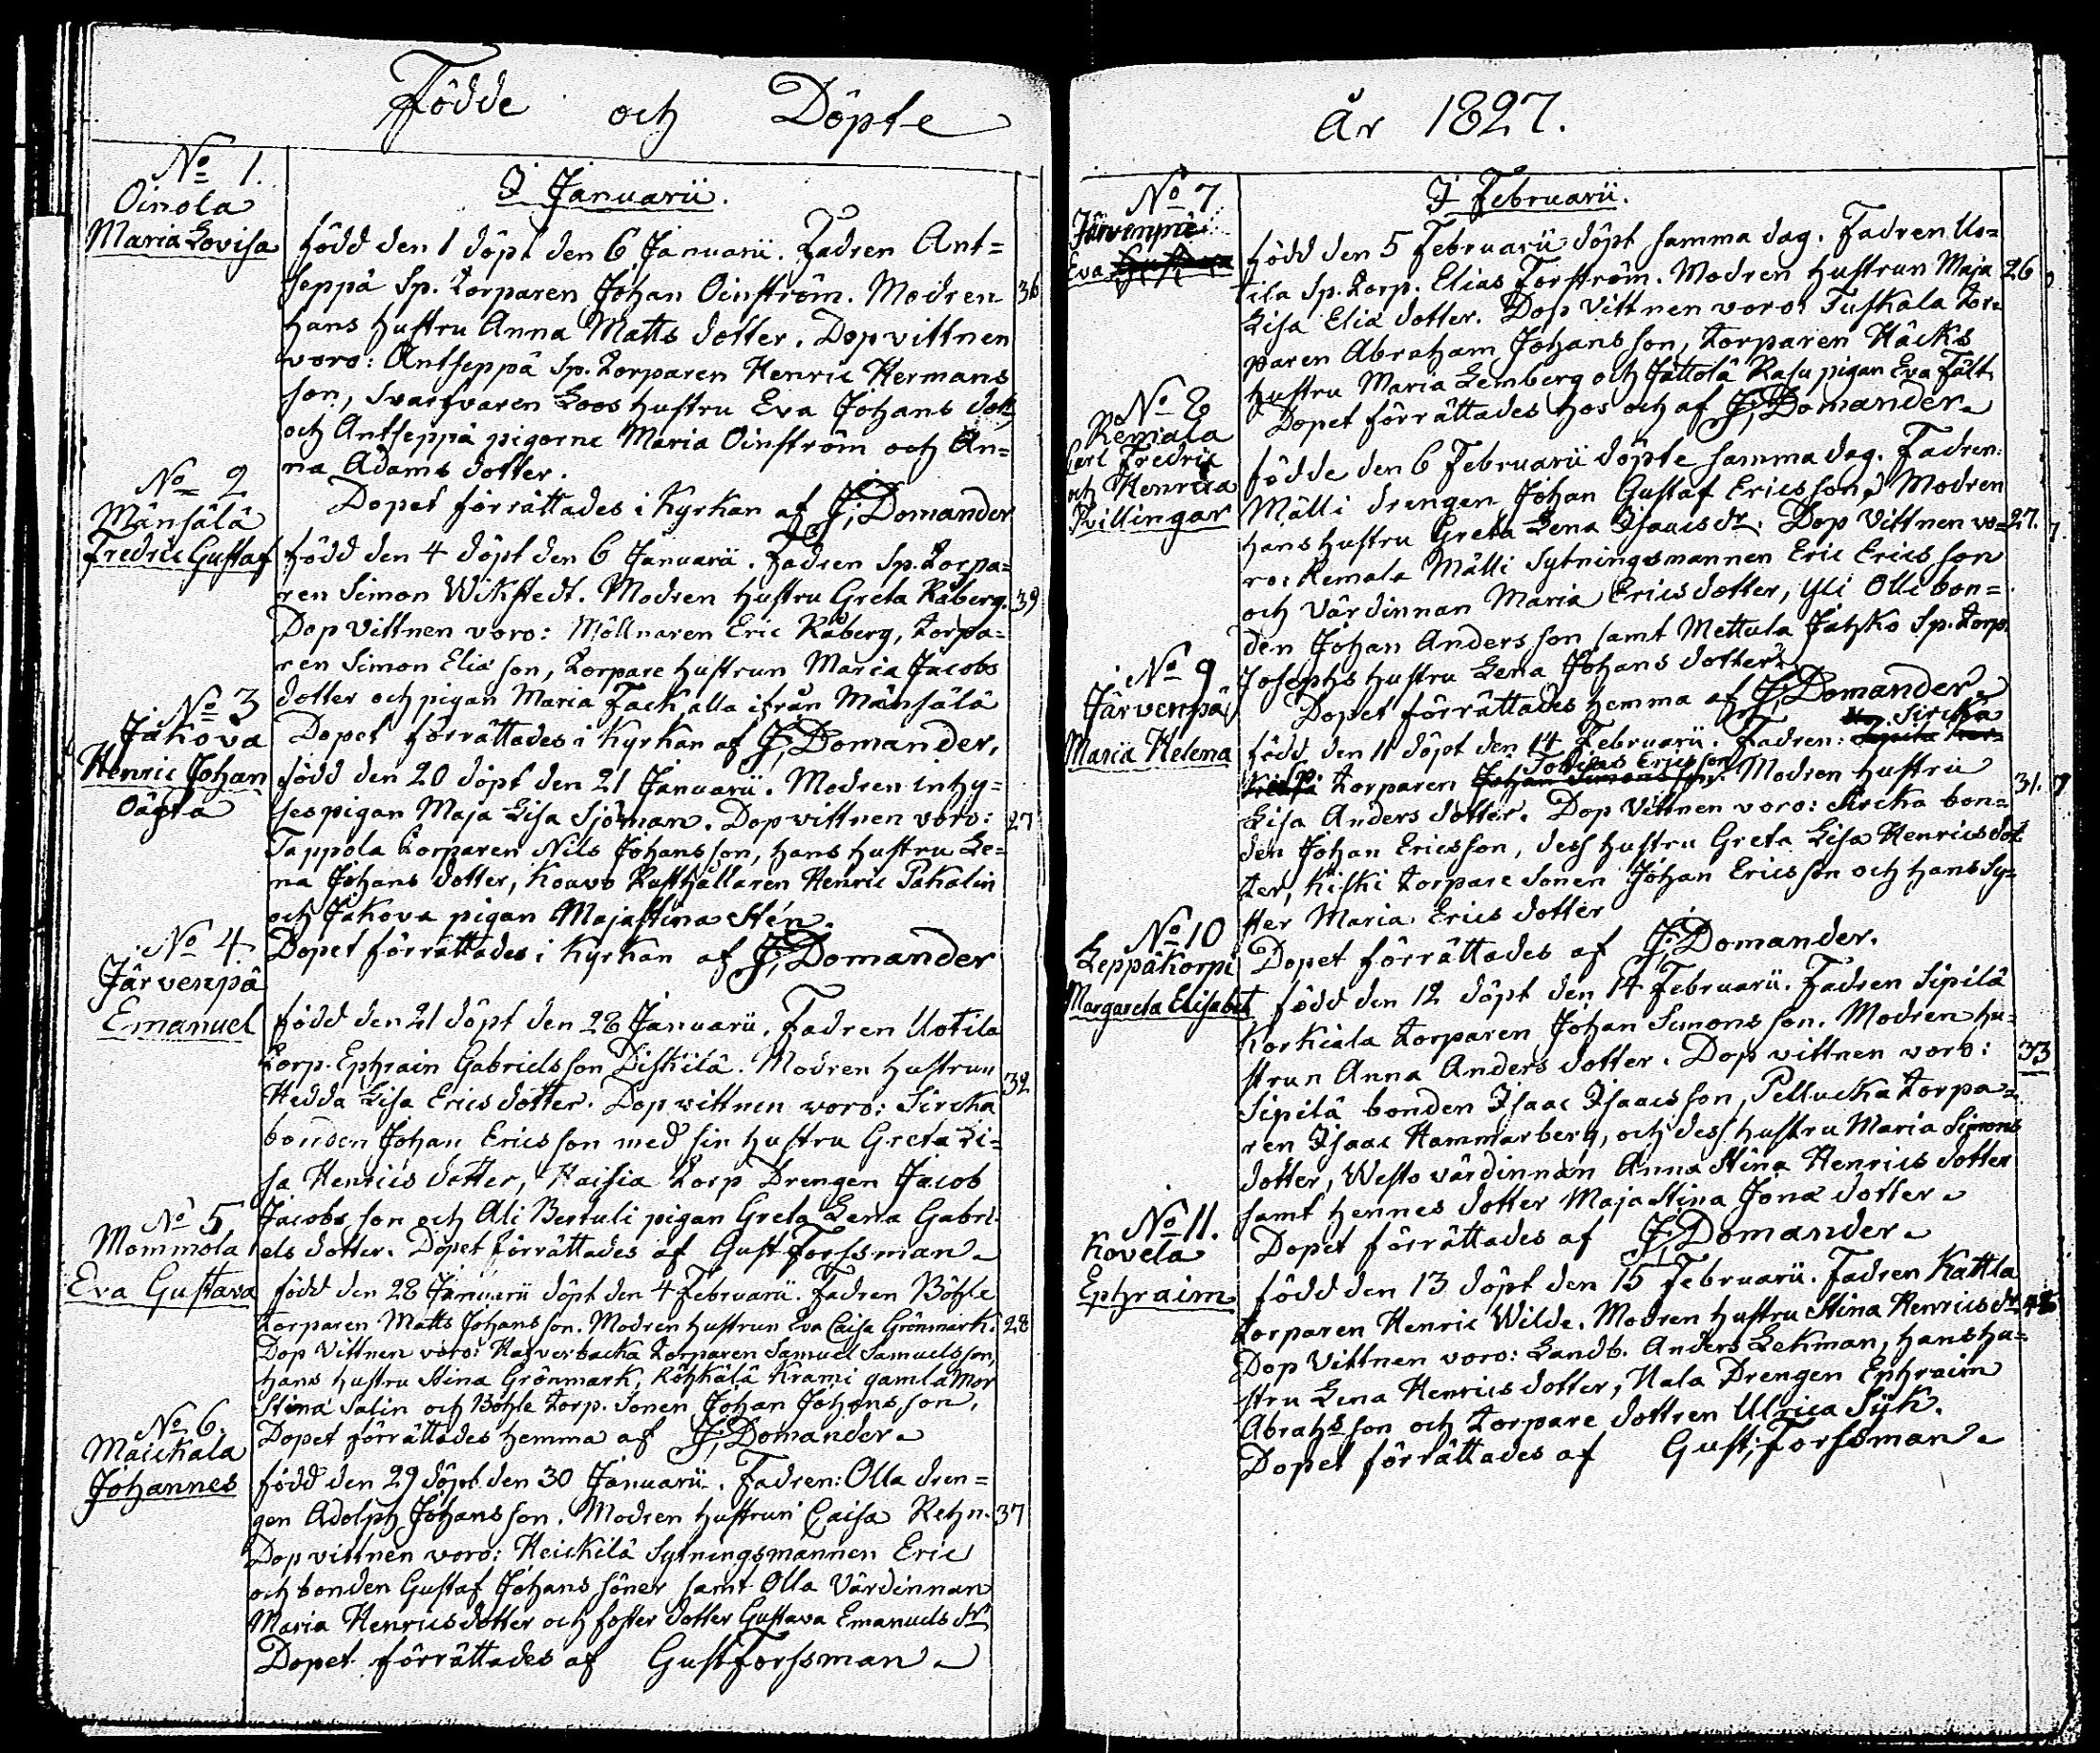 Födde och Döpte
N:o 1.
Oinola
Maria Lovisa
I Januarii.
född den 1 döpt den 6 Januarii. Fadren Ant=
seppä Sp. Torparen Johan Oinström. Modren 36
hans hustru Anna Matts dotter. Dopvittnen
voro: Antseppä Sp. Torparen Henric Hermans
son, Svarfvaren Loos hustru Eva Johans dott
och Antseppä pigorne Maria Oinström och An=
na Adams dotter.
Dopet förrättades i Kyrkan af J; Domander
N:o 2
Mänsälä
Fredric Gustaf
född den 4 döpt den 6 Januarii. Fadren Sp. Torpa=
ren Simon Wikstedt. Modren hustru Greta Råberg. 39
Dop Vittnen voro: Möllnaren Eric Råberg, torpa=
ren Simon Elia son, Torpare hustrun Maria Jacobs
dotter och pigan Maria Fackalla ifrån Mänsälä
Dopet förrättades i Kyrkan af J; Domander,
N:o 3
Jakova
Henric Johan
Oägta
född den 20 döpt den 21 Januarii. Modren inhy=
sespigan Maja Lisa Sjöman. Dopvittnen voro: 27
Tappola Torparen Nils Johansson, hans hustru Le=
na Johans dotter, Kouvo Rusthållaren Henric Pakalin
och Jakova pigan Majastina Stén.
Dopet förrättades i Kyrkan af J; Domander
N:o 4.
Järvenpä
Emanuel
född den 21 döpt den 28 Januarii. Fadren Uotila
Torp. Ephraim Gabrielsson Diskilä. Modren hustrun
Hedda Lisa Erics dotter. Dopvittnen voro: Sircka 32
bonden Johan Ericsson med sin hustru Greta Li=
sa Henrics dotter, Haisia Torp Drengen Jacob
Jacobs son och Ali Bertuli pigan Greta Lena Gabri
els dotter. Dopet förrättades af Gust Forssman.
N:o 5.
Mommola
Eva Gustava
född den 28 Januarii döpt den 4 Februarii. Fadren Böhle
Torparen Matts Johansson. Modren hustrun Eva Caisa Grönmark. 28
Dop Vittnen voro: Hafverbacka Torparen Samuel Samuelsson,
hans hustru Stina Grönmark, Röhkälä Krami gamla Mor
Stina Salin och Böhle Torp. Sonen Johan Johansson.
Dopet förrättades hemma af J; Domander.
N:o 6.
Maickala
Johannes
född den 29 döpt den 30 Januarii. Fadren: Olla dren=
gen Adolph Johansson. Modren hustrun Caisa Rehn. 37
Dopvittnen voro: Heickilä Sytningsmannen Eric
och bonden Gustaf Johans söner samt Olla Värdinnan
Maria Henricsdotter och foster dotter Gustava Emanuels dr
Dopet förrättades af Gust Forssman.
År 1827.
N:o 7
Järvenpä
Eva
I Februarii.
född den 5 Februarii döpt samma dag. Fadren Uo=
tila Sp. Torp. Elias Forström. Modren hustrun Maja 26
Lisa Elia dotter. Dop Vittnen voro: Tuskala Tor=
paren Abraham Johansson, Torparen Häcks
hustru Maria Lemberg och Jättölä Rasu pigan Eva Fält.
Dopet förrättades hos och af J; Domander.
N:o 8
Remala
Carl Fredric
och Henrica
Tvillingar
födde den 6 Februarii döpte samma dag. Fadren:
Mälli drengen Johan Gustaf Ericsson. Modren
hans hustru Greta Lena Isaacs dr. Dop Vittnen vo= 27.
ro: Remala Mälli Sytningsmannen Eric Ericsson
och Värdinnan Maria Ericsdotter, Yli Olli bon=
den Johan Andersson samt Mettula Jatzko Sp. torp.
Josephs hustru Lena Johans dotter.
Dopet förrättades hemma af J; Domander.
N:o 9
Järvenpä
Maria Helena
född den 11 döpt den 14 Februarii. Fadren: Sircka
Sp. torparen Tobias Ericsson. Modren hustru 31.
Lisa Anders dotter. Dop Vittnen voro: Sircka bon=
den Johan Ericsson, dess hustru Greta Lisa Henricsdot
ter, Kiski torpare Sonen Johan Ericsson och hans Sy=
ster Maria Erics dotter
Dopet förrättades af J; Domander.
N:o 10
Leppäkorpi
Margareta Elisabet
född den 12 döpt den 14 Februarii. Fadren Sipilä
Korkiala torparen Johan Simonsson. Modren hu=
strun Anna Anders dotter. Dop vittnen voro: 33
Sipilä bonden Isaac Isaacsson, Pellucka torpa=
ren Isaac Hammarberg, och dess hustru Maria Simons
dotter, Westo värdinnan Anna Stina Henrics dotter
samt hennes dotter Maja Stina Jona dotter.
Dopet förrättades af J; Domander.
N:o 11.
Kovela
Ephraim
född den 13 döpt den 15 Februarii. Fadren Kattla
torparen Henric Wilde. Modren hustru Stina Henrics dr
Dop Vittnen voro: Landb. Anders Lekman, hans hu=
stru Lena Henrics dotter, Nala Drengen Ephraim
Abrahs son och torpare dottren Ulrica Syk.
Dopet förrättades af Gust; Forssman.